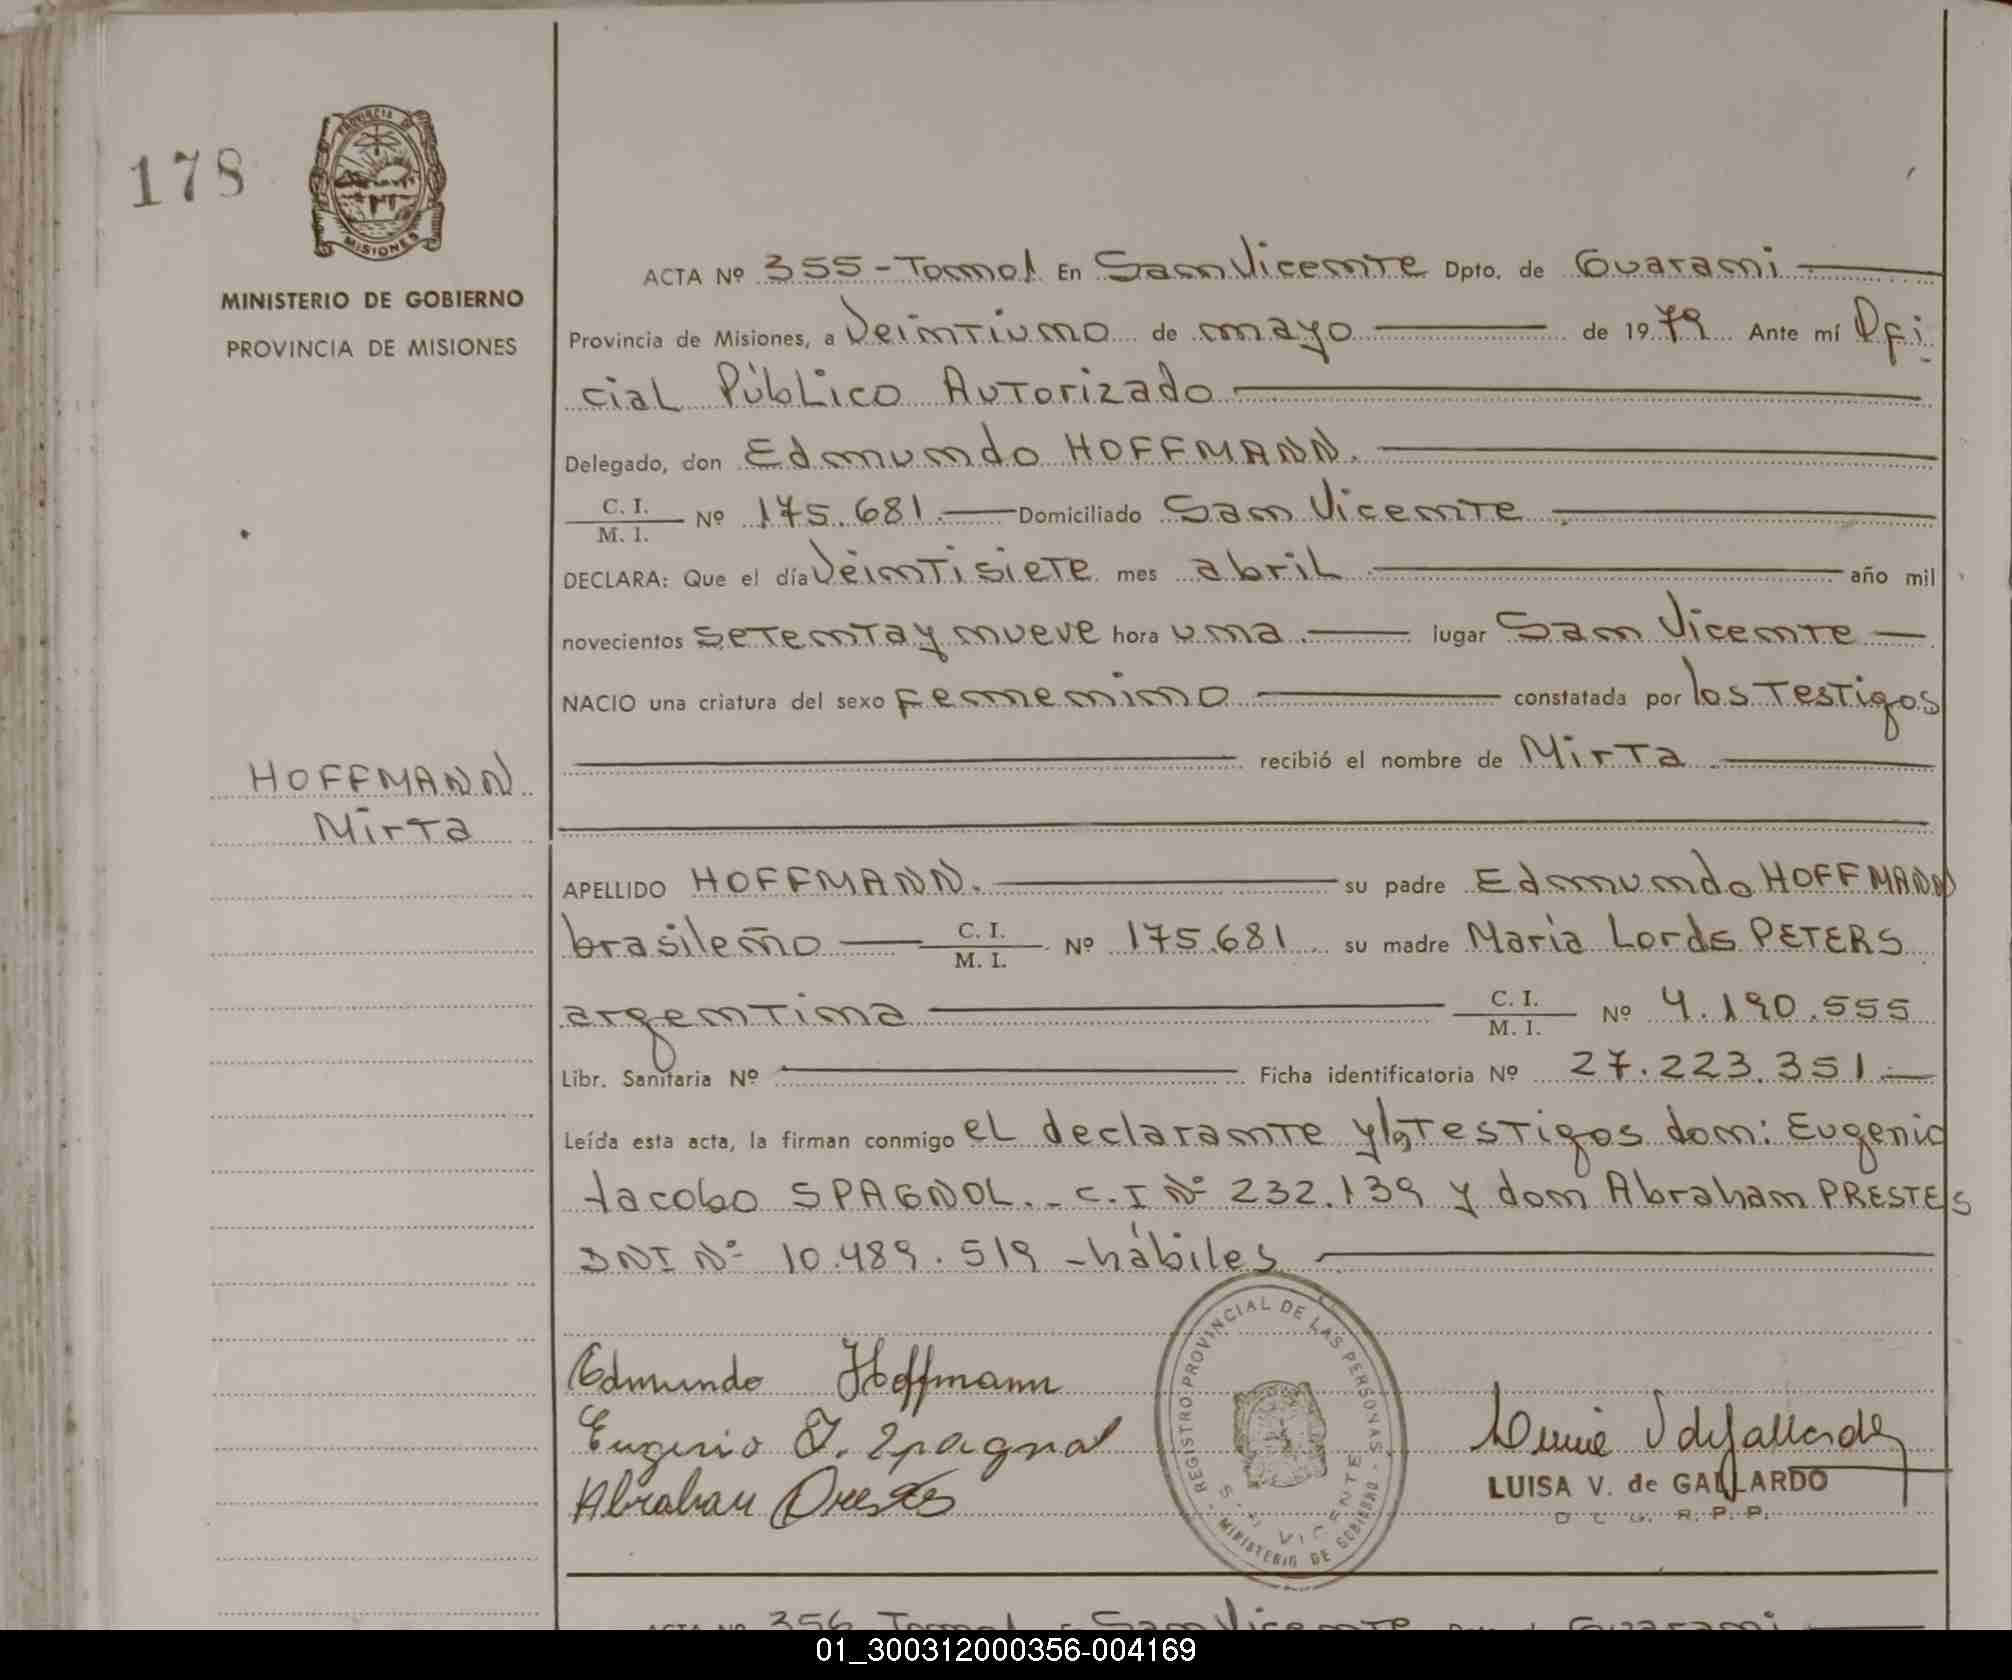 178
PROVINCIA DE
MISIONES
MINISTERIO DE GOBIERNO
PROVINCIA DE MISIONES
ACTA Nº 355-Tomo I En San Vicente Dpto. de Guarani
Provincia de Misiones, a Veintiuno de mayo de 1979 Ante mí Ofi
cial Público Autorizado
Delegado, don Edmundo HOFFMANN.
C. I.
M. I. Nº 175.681. Domiciliado San Vicente
DECLARA: Que el día Veintisiete mes abril año mil
novecientos setenta y nueve hora una. lugar San Vicente
NACIO una criatura del sexo femenino constatada por los Testigos
recibió el nombre de Mirta
HOFFMANN
Mirta
APELLIDO HOFFMANN. su padre Edmundo HOFFMANN
brasileño C. I.
M. I. Nº 175.681 su madre Maria Lords PETERS
argentina C. I.
M. I. Nº 4.190.555
Libr. Sanitaria Nº Ficha identificatoria Nº 27.223.351.
Leída esta acta, la firman conmigo el declarante y los Testigos don: Eugenio
Jacobo SPAGNOL.- C.I Nº 232.139 y don Abraham PRESTES
DNI Nº 10.489.519 -hábiles
Edmundo Hoffmann
Eugenio J. Spagnol
Abraham Prestes
REGISTRO PROVINCIAL DE LAS PERSONAS - MINISTERIO DE GOBIERNO
VICENTE
LUISA V. de GALLARDO
R. P. P.
ACTA Nº 356 Tomo I En San Vicente Dpto. de Guarani
01_300312000356-004169